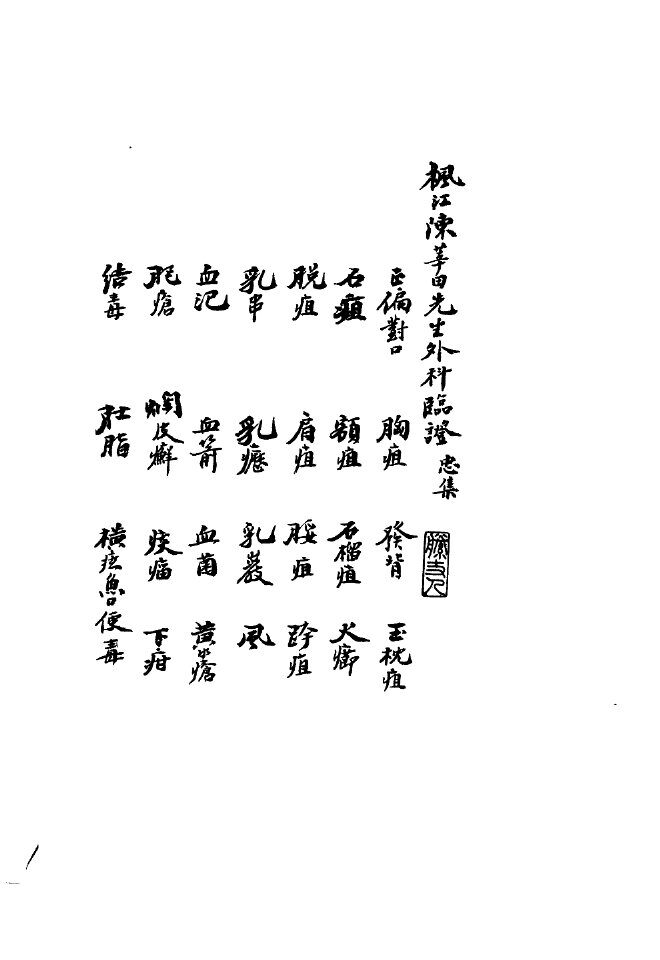 楓江陳莘田先生外科臨證 忠集
正偏對口 胸疽 發背 玉枕疽
石疽 額疽 石榴疽 火癤
脫疽 肩疽 腦疽 跨疽
乳串 乳癧 乳巖 風
血汜 血箭 血菌 黃水瘡
肥瘡 爛皮癬 痰癟 下疳
結毒 肚脂 橫痃魚口便毒